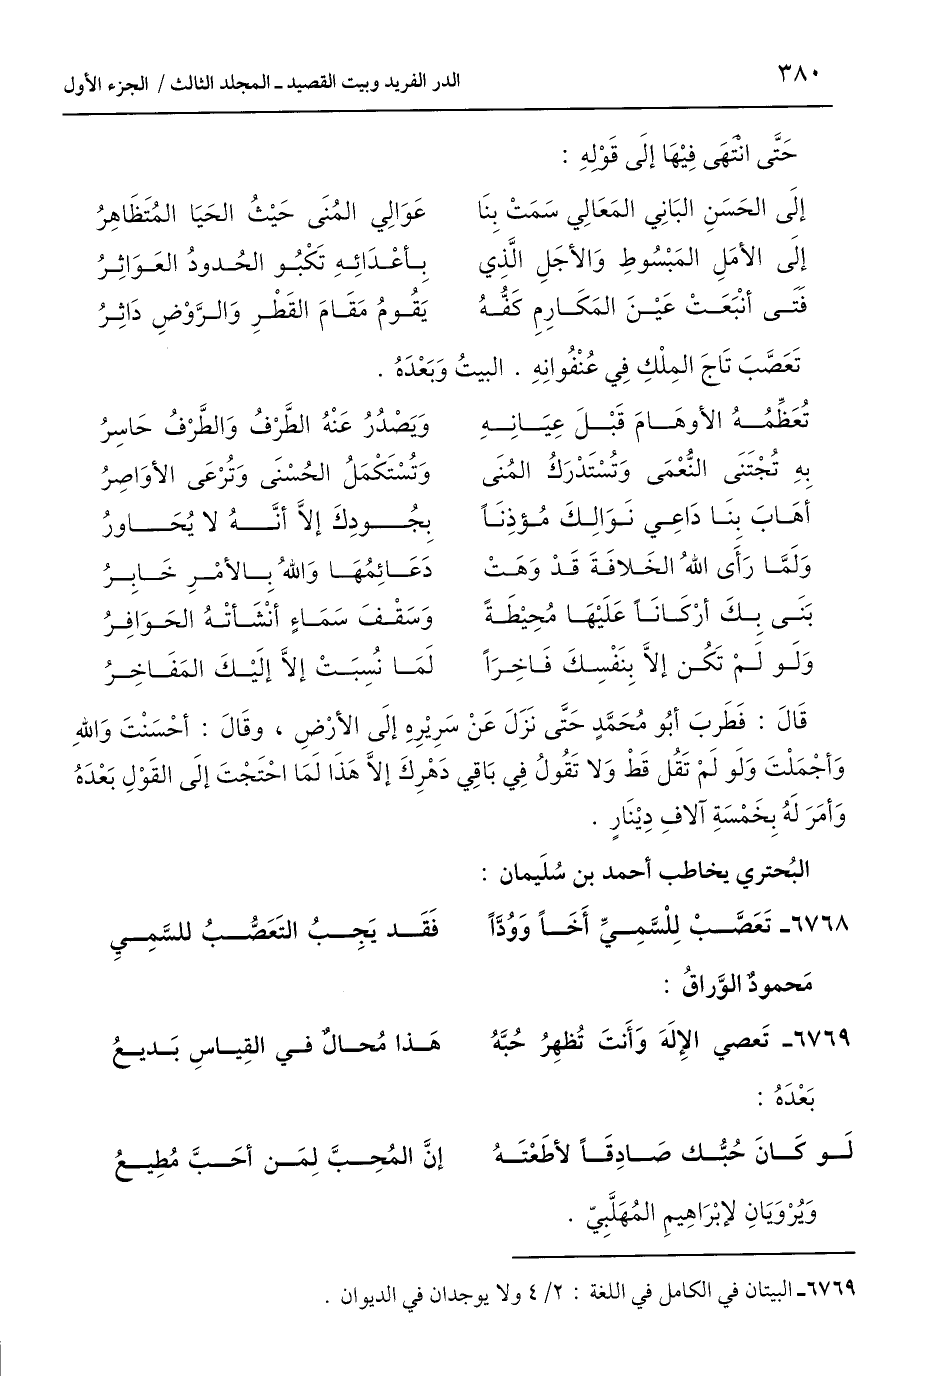 ٣٨٠ الدر الفريد وبيت القصيد ـ المجلد الثالث / الجزء الأول
حَتَّى انْتَهَى فِيْهَا إِلَى قَوْلِهِ :
إِلَى الحَسَنِ البَانِي المَعَالِي سَمَتْ بِنَا عَوَالِي المُنَى حَيْثُ الحَيَا المُتَظَاهِرُ
إِلَى الأَمَلِ المَبْسُوطِ وَالأَجَلِ الَّذِي بِأَعْدَائِهِ تَكْبُو الجُدودُ العَوَاثِرُ
فَتَى أَنْبَعَتْ عَيْنَ المَكَارِمِ كَفُّهُ يَقُومُ مَقَامَ القَطْرِ وَالرَّوْضِ دَاثِرُ
تَعَصَّبَ تَاجَ المِلْكِ فِي عُنْفُوَانِهِ . البيتُ وَبَعْدَهُ .
تُعَظِّمُهُ الأَوهَامَ قَبْلَ عِيَانِهِ وَيَصْدُرُ عَنْهُ الطَّرْفُ وَالطَّرْفُ حَاسِرُ
بِهِ تُجْتَنَى النُّعْمَى وَتُسْتَدْرَكُ المُنَى وَتُسْتَكْمَلُ الحُسْنَى وَتُرْعَى الأَوَاصِرُ
أَهَابَ بِنَا دَاعِي نَوَالِكَ مُؤذِنَاً بِجُودِكَ إِلاَّ أَنَّهُ لا يُحَاورُ
وَلَمَّا رَأَى اللهُ الخَلافَةَ قَدْ وَهَتْ دَعَائِمُهَا وَاللهُ بِالأَمْرِ خَابِرُ
بَنَى بِكَ أَرْكَانَاً عَلَيْهَا مُحِيْطَةً وَسَقْفَ سَمَاءٍ أَنْشَأَتْهُ الحَوَافِرُ
وَلَو لَمْ تَكُن إِلاَّ بِنَفْسِكَ فَاخِرَاً لَمَا نُسِبَتْ إِلاَّ إِلَيْكَ المَفَاخِرُ
قَالَ : فَطَرِبَ أَبُو مُحَمَّدٍ حَتَّى نَزَلَ عَنْ سَرِيْرِهِ إِلَى الأَرْضِ ، وقَالَ : أَحْسَنْتَ وَاللهِ
وَأَجْمَلْتَ وَلَو لَمْ تَقُل قَطْ وَلا تَقُولُ فِي بَاقِي دَهْرِكَ إِلاَّ هَذَا لَمَا احْتَجْتَ إِلَى القَوْلِ بَعْدَهُ
وَأَمَرَ لَهُ بِخَمْسَةِ آلافِ دِيْنَارٍ .
البُحتري يخاطب أحمد بن سُلَيمان :
٦٧٦٨ـ تَعَصَّبْ لِلْسَّمِيِّ أَخَاً وَوُدَّاً فَقَد يَجِبُ التَعَصُّبُ للسَّمِي
مَحمودٌ الوَّراقُ :
٦٧٦٩ـ تَعصي الإِلَهَ وَأَنتَ تُظهِرُ حُبَّهُ هَذا مُحالٌ في القِياسِ بَديعُ
بَعْدَهُ :
لَو كَانَ حُبُّك صَادِقَاً لأَطَعْتَهُ إِنَّ المُحِبَّ لِمَن أَحَبَّ مُطِيعُ
وَيُرْوَيَانِ لإِبْرَاهِيمِ المُهَلَّبِيّ .
٦٧٦٩ـ البيتان في الكامل في اللغة : ٢/ ٤ ولا يوجدان في الديوان .